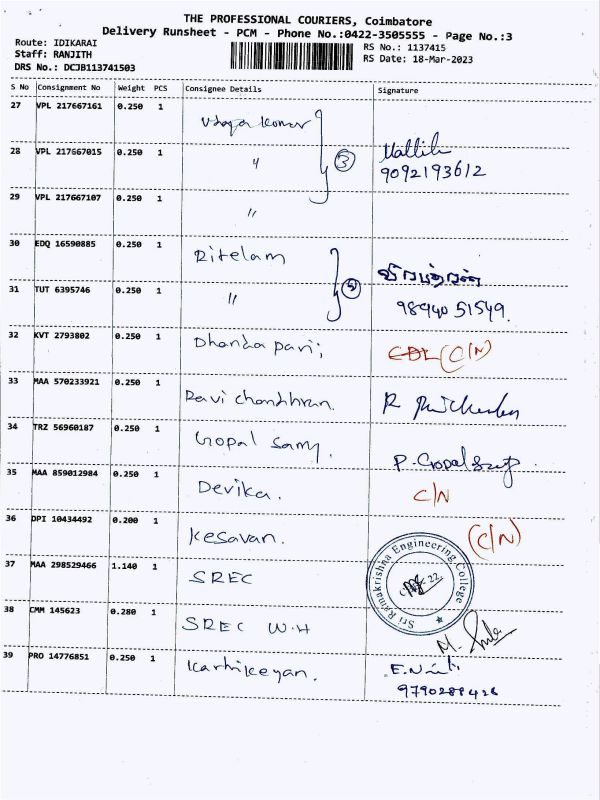 THE PROFESSIONAL COURIERS, Coimbatore
Delivery Runsheet - PCM - Phone No.:0422-3505555 - Page No.:3
Route: IDIKARAI
Staff: RANJITH
DRS No.: DCJB113741503
RS No.: 1137415
RS Date: 18-Mar-2023
S No Consignment No Weight PCS Consignee Details Signature
27 VPL 217667161 0.250 1 Udaya Kumar
28 VPL 217667015 0.250 1 〃 3 Mallika
9092193612
29 VPL 217667107 0.250 1 〃
30 EDQ 16590885 0.250 1 Ritelam
31 TUT 6395746 0.250 1 〃 98940 51549.
32 KVT 2793802 0.250 1 Dhandapani; CDL (C/N)
33 MAA 570233921 0.250 1 Ravi chandhran. R
34 TRZ 56960187 0.250 1 Gopal samy. P. Gopal Samy.
35 MAA 859012984 0.250 1 Devika. C/N
36 DPI 10434492 0.200 1 Kesavan. (C/N)
37 MAA 298529466 1.140 1 SREC
Sri Ramakrishna Engineering College
38 CMM 145623 0.280 1 SREC W.H
39 PRO 14776851 0.250 1 Karthikeyan. E.
9790289426